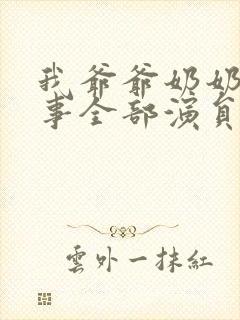 我爷爷奶奶
事全部演員
雲外一抹紅